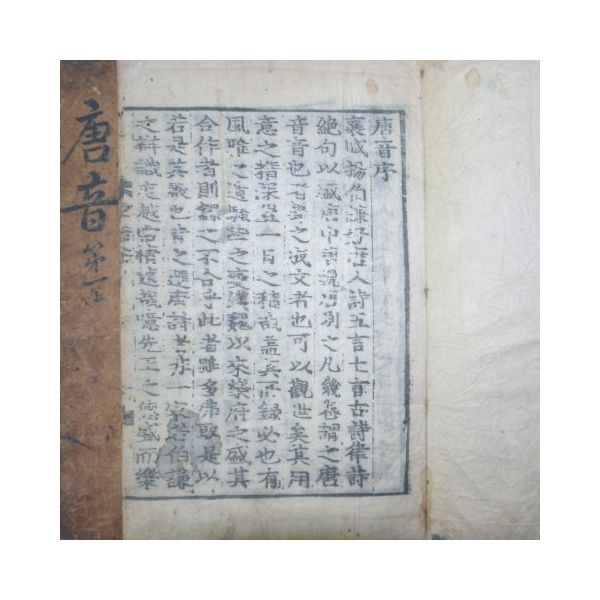 唐音序
襄城楊伯謙好唐人詩五言七言古詩律詩
絶句以盛唐中唐晚唐別之凡幾卷謂之唐
音音也者聲之成文者也可以觀世矣其用
意之精深豈一日之積哉盖其所錄必也有
風雅之遺騷些之變漢魏以來樂府之盛其
合作者則錄之不合乎此者雖多弗取是以
若是其嚴也昔之選唐詩者非一家若伯謙
之辯識度越常情遠哉噫先王之德盛而樂
唐音 第一